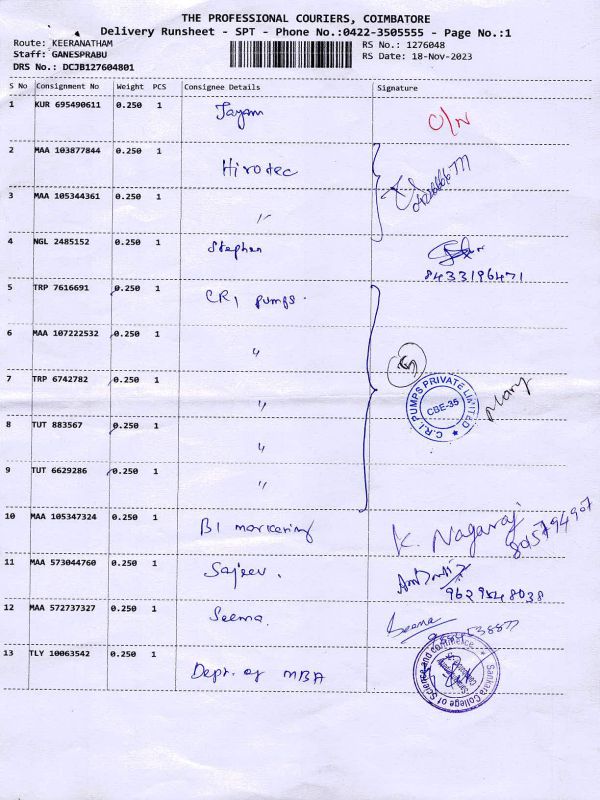 THE PROFESSIONAL COURIERS, COIMBATORE
Delivery Runsheet - SPT - Phone No.:0422-3505555 - Page No.:1
Route: KEERANATHAM
Staff: GANESPRABU
DRS No.: DCJB127604801
RS No.: 1276048
RS Date: 18-Nov-2023
S No Consignment No Weight PCS Consignee Details Signature
1 KUR 695490611 0.250 1 Jayam O/N
2 MAA 103877844 0.250 1 Hirotec
3 MAA 105344361 0.250 1 "
4 NGL 2485152 0.250 1 Stephen
8433196471
5 TRP 7616691 0.250 1 CRI pumps.
6 MAA 107222532 0.250 1 "
7 TRP 6742782 0.250 1 "
C.R.I. PUMPS PRIVATE LIMITED
CBE-35
Mary
8 TUT 883567 0.250 1 "
9 TUT 6629286 0.250 1 "
10 MAA 105347324 0.250 1 BI marketing K. Nagaraj
11 MAA 573044760 0.250 1 Sajeev.
9629548038
12 MAA 572737327 0.250 1 Seema. Seema
13 TLY 10063542 0.250 1 Dept. of MBA
Sankara College of Science and commerce